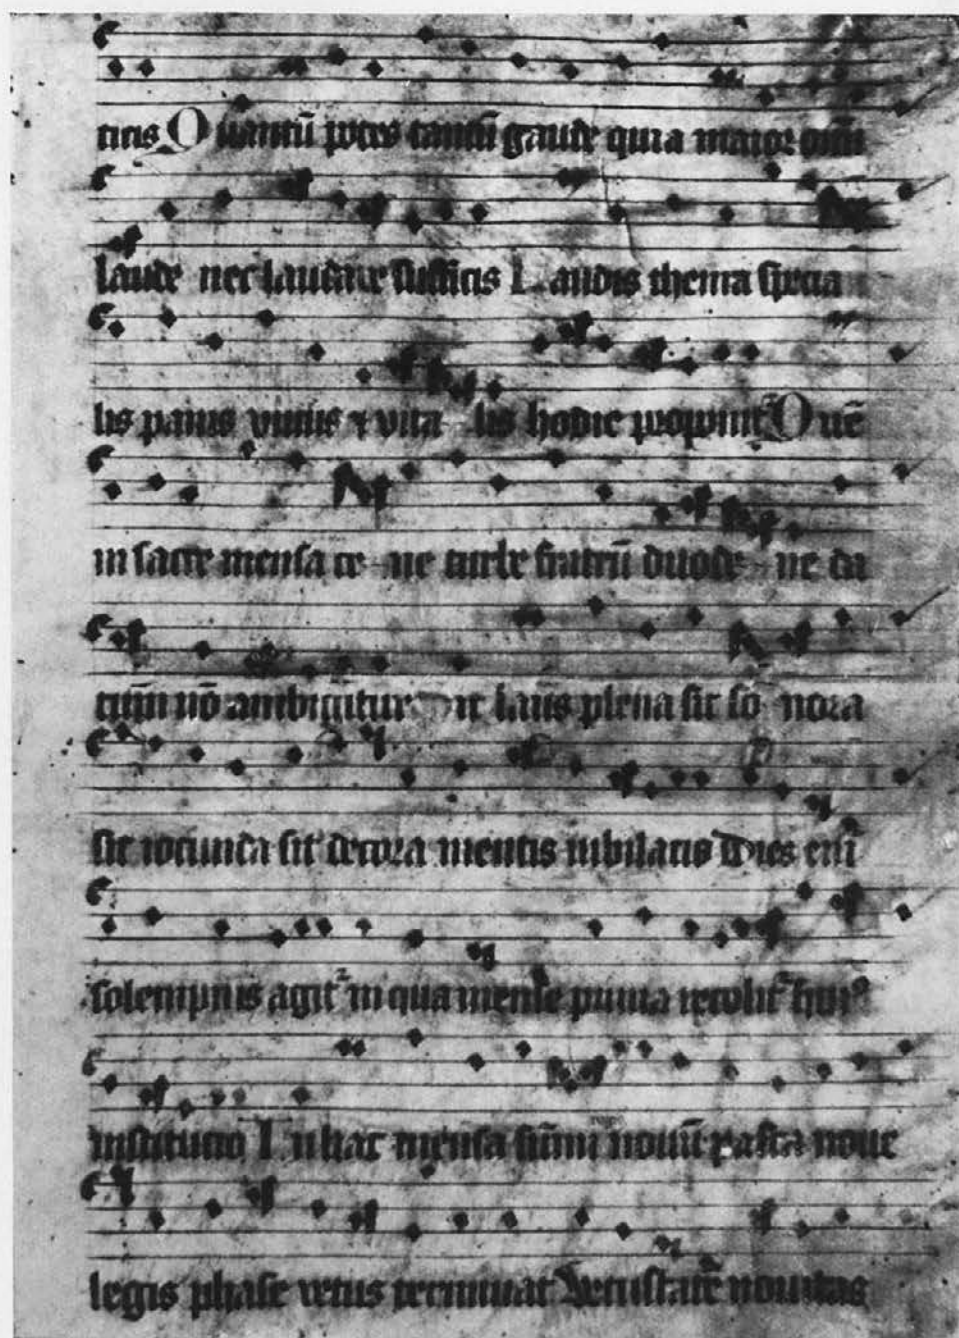 ticis Quantū potes tantū gaude quia maior omī
laude nec laudare sufficis Laudis thema specia
lis panis vivus ⁊ vita lis hodie proponit᷑ Quē
in sacre mensa ce ne turbe fratrū duode ne da
tum nō ambigitur Sit laus plena sit so nora
sit iocunda sit decora mentis iubilatio Dies enī
solempnis agit᷑ in qua mense prima recolit᷑ huiꝰ
institutio In hac mensa novi novū pasca nove
legis phase vetus terminat Vetustatē novitas